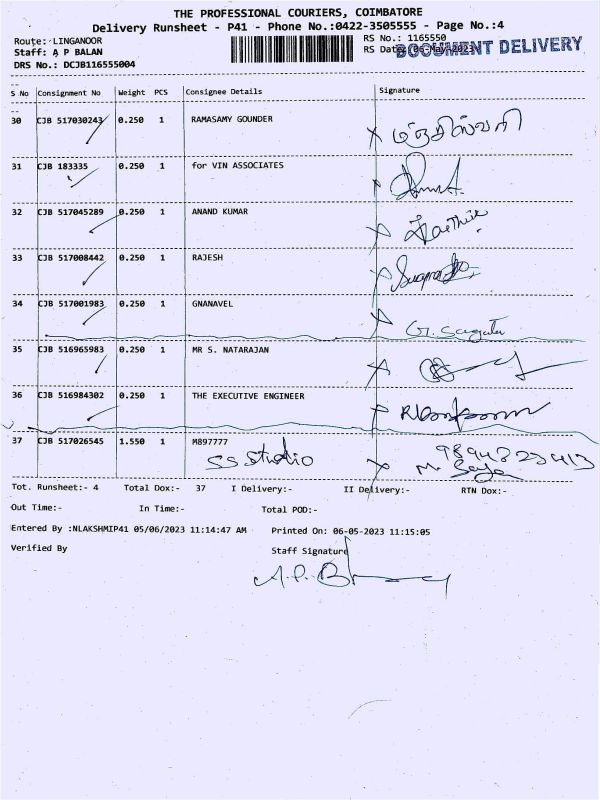 THE PROFESSIONAL COURIERS, COIMBATORE
Delivery Runsheet - P41 - Phone No.:0422-3505555 - Page No.:4
Route: LINGANOOR
RS No.: 1165550
Staff: A P BALAN
RS Date: 06-May-2023
DOCUMENT DELIVERY
DRS No.: DCJB116555004
S No Consignment No Weight PCS Consignee Details Signature
30 CJB 517030243 0.250 1 RAMASAMY GOUNDER
31 CJB 183335 0.250 1 for VIN ASSOCIATES
32 CJB 517045289 0.250 1 ANAND KUMAR
33 CJB 517008442 0.250 1 RAJESH
34 CJB 517001983 0.250 1 GNANAVEL
35 CJB 516965983 0.250 1 MR S. NATARAJAN
36 CJB 516984302 0.250 1 THE EXECUTIVE ENGINEER
37 CJB 517026545 1.550 1 M897777
SS Studio
Tot. Runsheet:- 4 Total Dox:- 37 I Delivery:- II Delivery:- RTN Dox:-
Out Time:- In Time:- Total POD:-
Entered By :NLAKSHMIP41 05/06/2023 11:14:47 AM Printed On: 06-05-2023 11:15:05
Verified By Staff Signature
A.P.